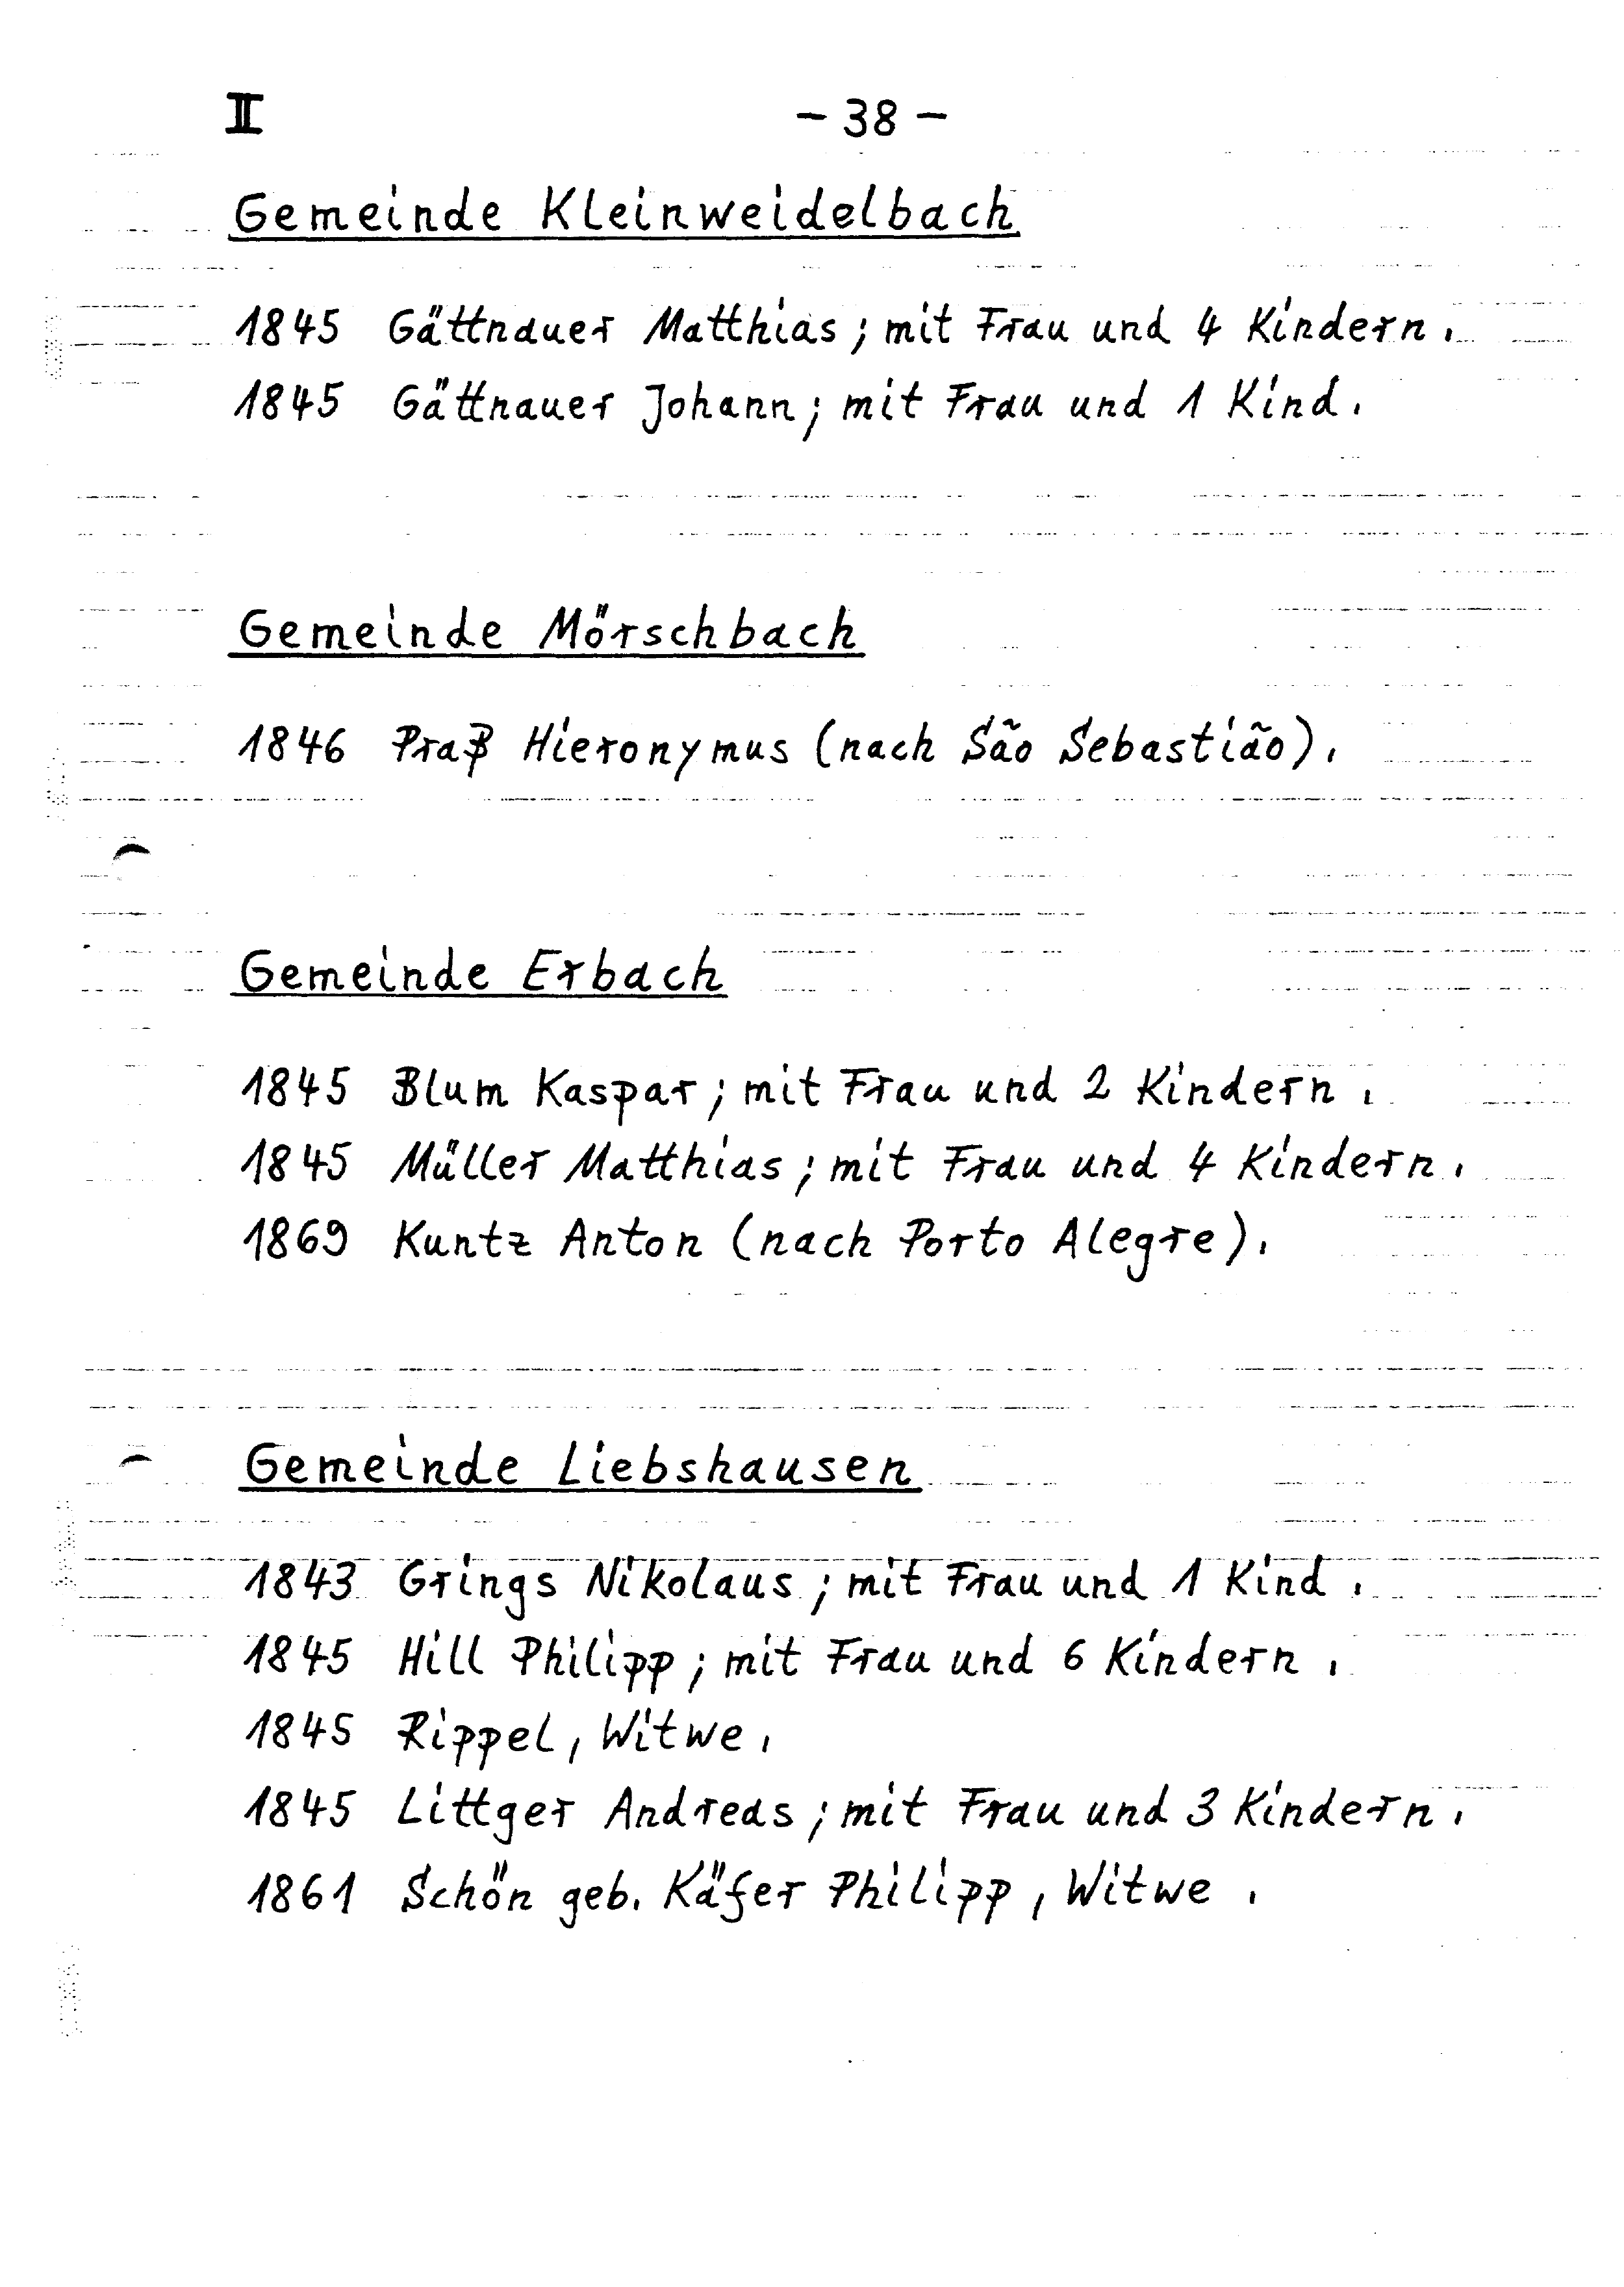 II - 38 -
Gemeinde Kleinweidelbach
1845 Gättnauer Matthias; mit Frau und 4 Kindern.
1845 Gättnauer Johann; mit Frau und 1 Kind.
Gemeinde Mörschbach
1846 Praß Hieronymus (nach São Sebastião).
Gemeinde Erbach
1845 Blum Kaspar; mit Frau und 2 Kindern.
1845 Müller Matthias; mit Frau und 4 Kindern.
1869 Kuntz Anton (nach Porto Alegre).
Gemeinde Liebshausen
1843 Grings Nikolaus; mit Frau und 1 Kind.
1845 Hill Philipp; mit Frau und 6 Kindern.
1845 Rippel, Witwe.
1845 Littger Andreas; mit Frau und 3 Kindern.
1861 Schön geb. Käfer Philipp, Witwe.